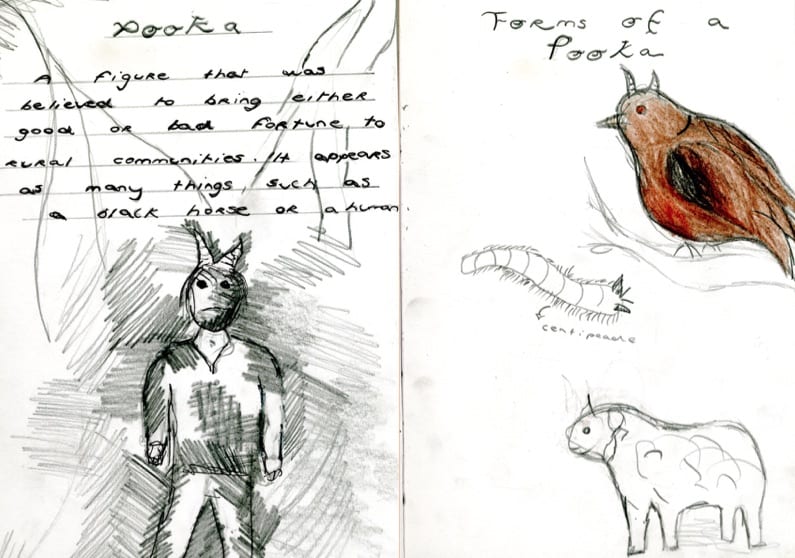 Pooka
A figure that was
believed to bring either
good or bad fortune to
rural communities. It appears
as many things, such as
a black horse or a human.
Forms of a
Pooka
centipeade